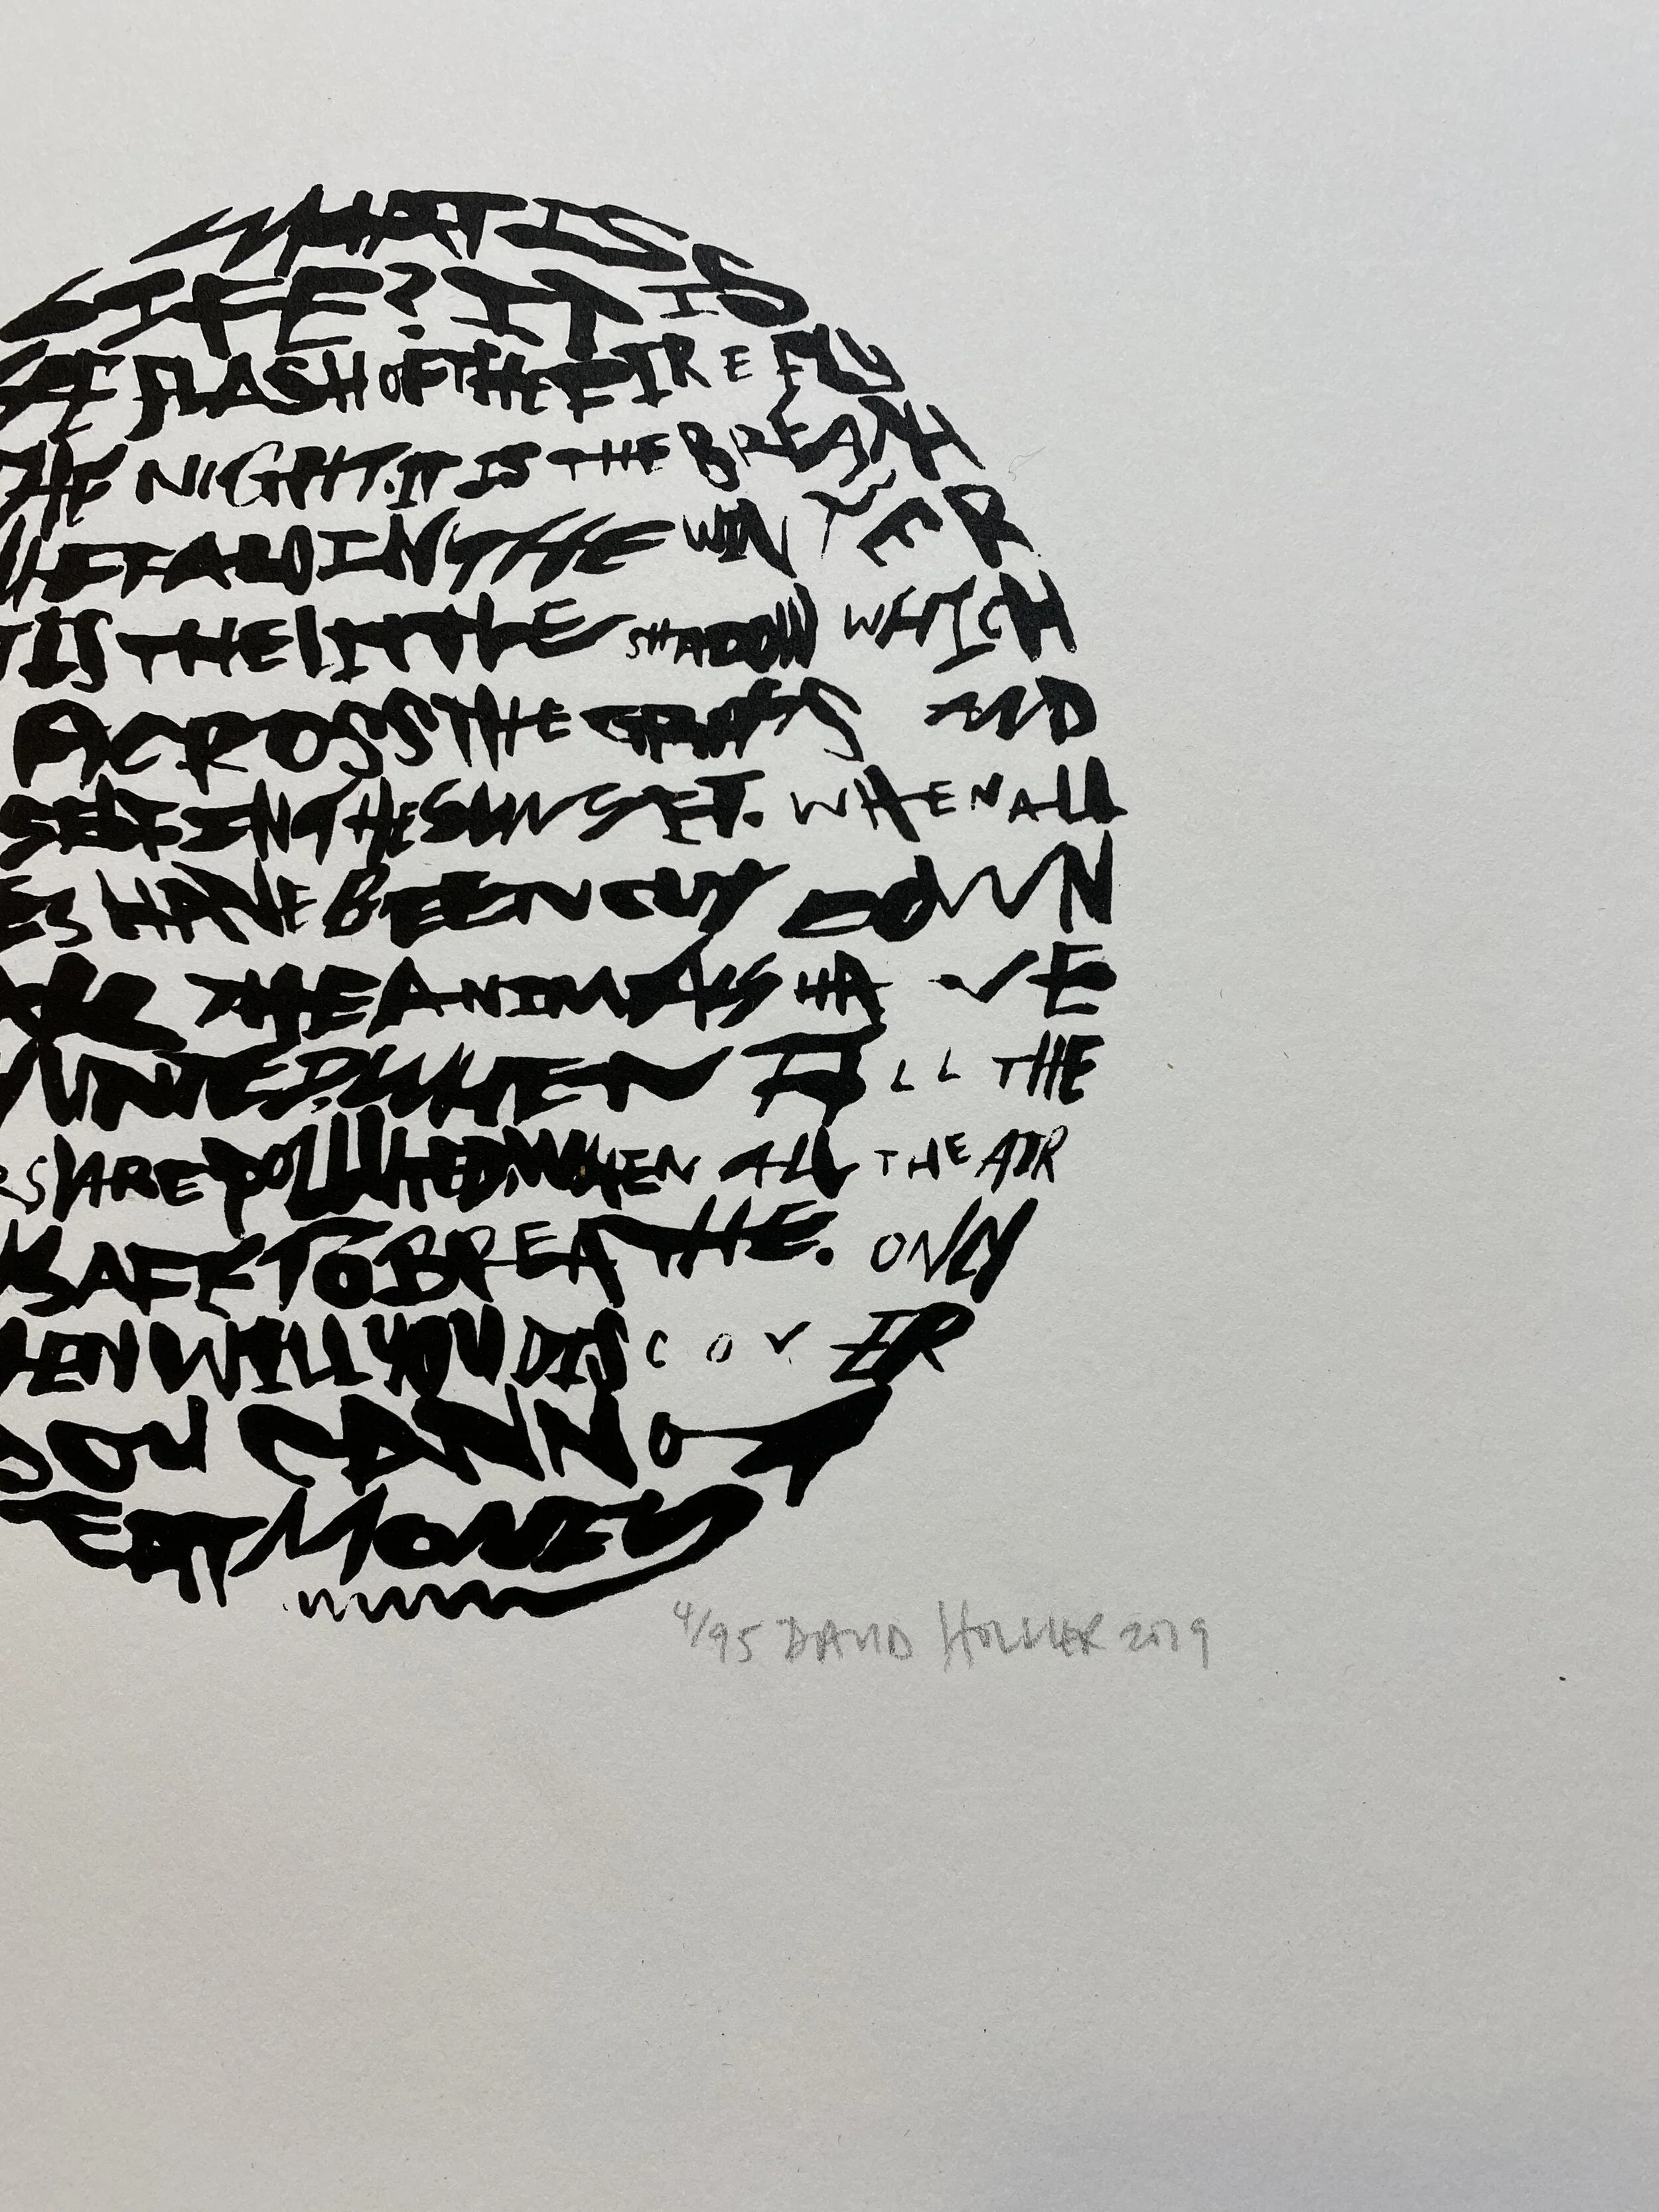 WHAT IS
LIFE? IT IS
FLASH OF THE FIREFLY
THE NIGHT. IT IS THE BREATH
UFFALO IN THE WINTER
T IS THE LITTLE SHADOW WHICH
ACROSS THE GRASS AND
SELF IN THE SUNSET. WHEN ALL
ES HAVE BEEN CUT DOWN
THE ANIMALS HAVE
UNTED. WHEN ALL THE
RS ARE POLLUTED. WHEN ALL THE AIR
SAFE TO BREATHE. ONLY
HEN WILL YOU DISCOVER
YOU CANNOT
EAT MONEY
4/95 DAVID HOLLIER 2019